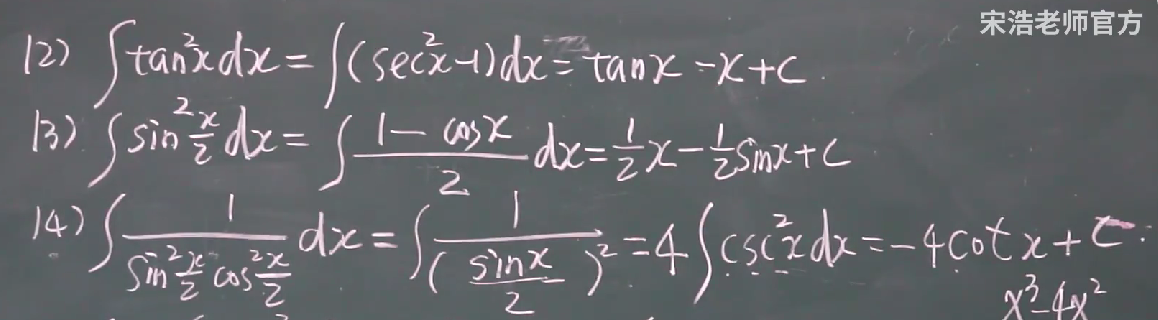 宋浩老师官方
12) ∫tan²x dx = ∫(sec²x-1)dx = tanx - x + C.
13) ∫sin²\frac{x}{2} dx = ∫\frac{1-cosx}{2} dx = \frac{1}{2}x - \frac{1}{2}sinx + C
14) ∫\frac{1}{sin²\frac{x}{2} cos²\frac{x}{2}} dx = ∫\frac{1}{(\frac{sinx}{2})²} = 4∫csc²x dx = -4cotx + C.
x³-4x²